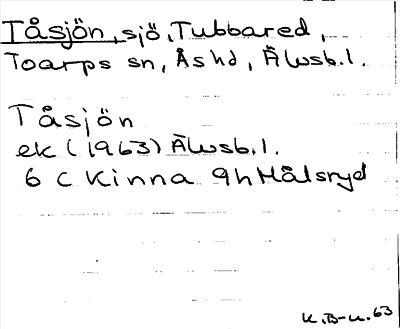 Tåsjön, sjö, Tubbared,
Toarps sn, Ås hd, Älvsb. l.
Tåsjön
ek (1963) Älvsb. l.
6 C Kinna 9h Målsryd
K. B-n. 63